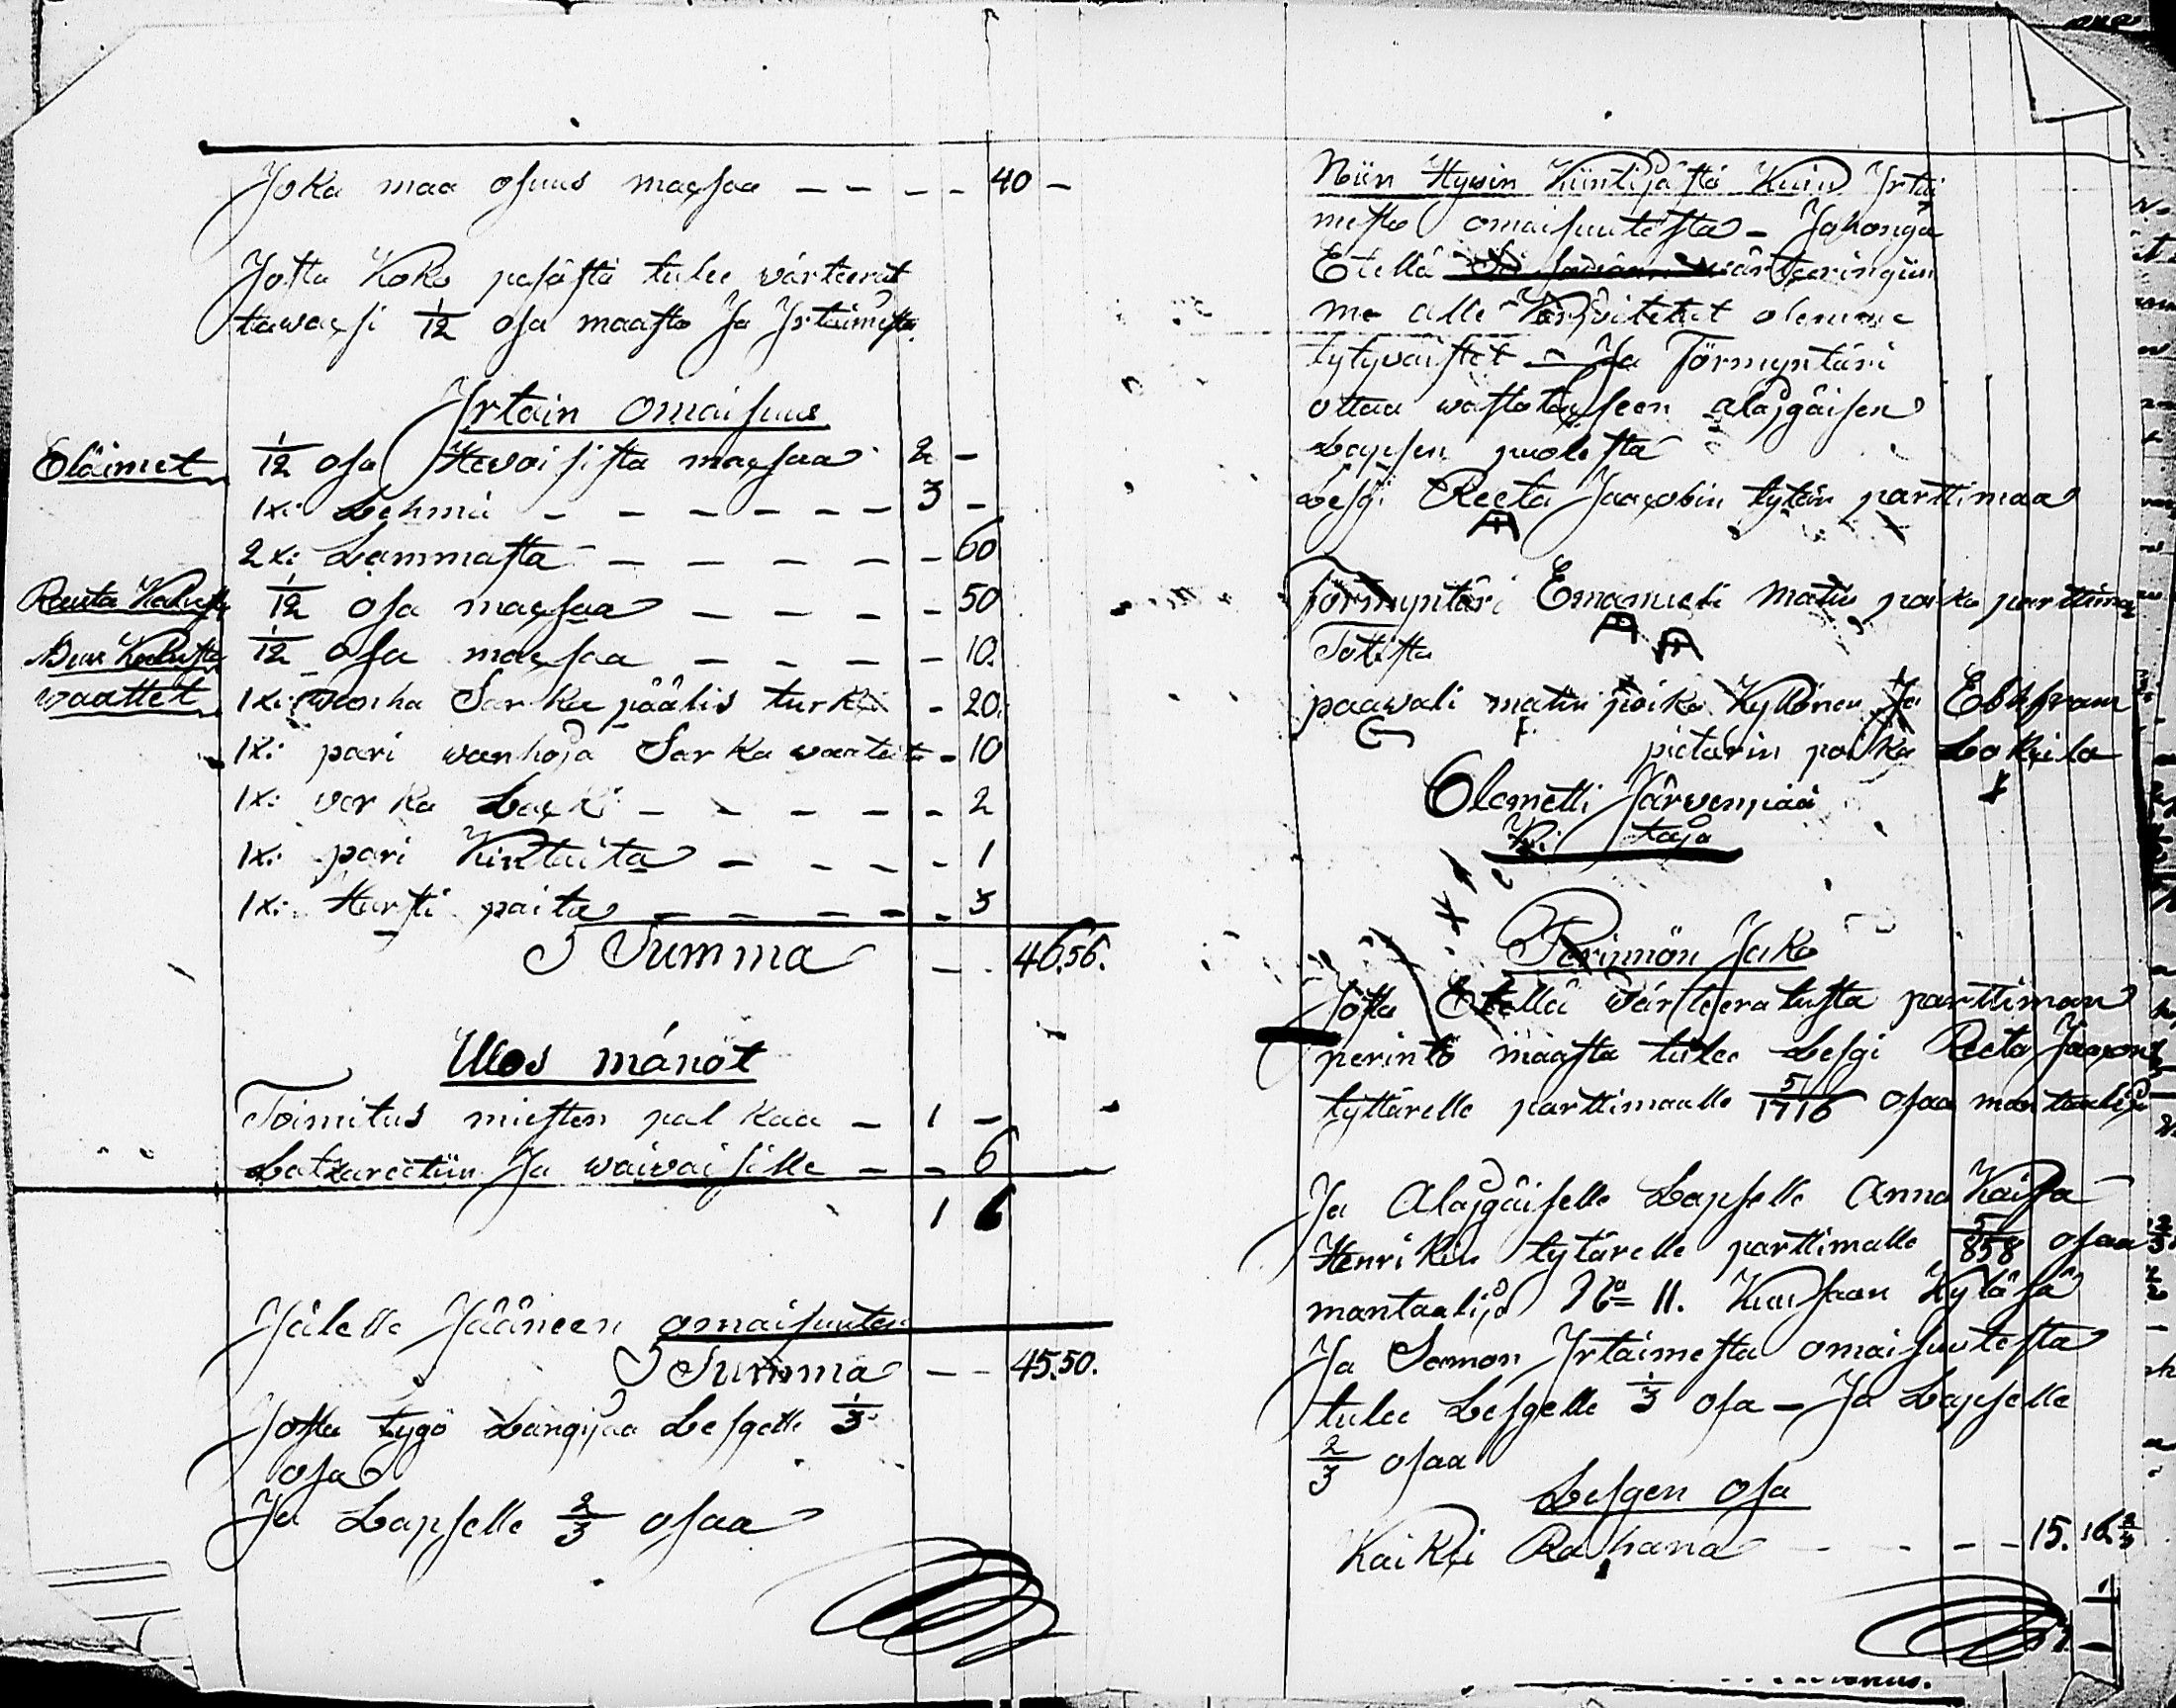 Joka maa osuus maxsaa — — — — 40 —
Josta Koko pesästä tulee värteerat
tawaxsi 1/12 osa maasta Ja Irtaimesta.
Irtain omaisuus
Eläimet 1/12 osa Hevoisista maxsaa 2 —
1x: Lehmä — — — — — — 3 —
2x: Lammasta — — — — — 60
Rauta Kalusta 1/12 osa maxsaa — — — — 50
Puu Kalusta 1/12 osa maxsaa — — — — 10.
vaattet 1x: wanha Sarka päälis turki - 20.
1x: pari wanhoja Sarka vaateita - 10
1x: verka Lacki — — — — — 2
1x: pari Kintaita — — — — 1
1x: Hursti paita — — — — — 3
Summa — . 46.56.
Ulos mänöt
Toimitus miesten palkaa — 1 —
Latzareetiin Ja waivaisille — — 6
1 6
Jälelle Jääneen omaisuuten
Summa — — 45.50.
Josta tygö Langijaa Lesgelle 1/3
osa
Ja Lapselle 2/3 osaa
Niin Hywin Kiintijästä Kuin Irtai
mesta omaisuutesta — Jahonga
Etellä wärteeringiin
me alle Kirjoitetut olemme
tytyväiset — Ja Förmyntäri
ottaa wastataxseen alajgäisen
Lapsen puolesta
Lesgi Reeta Jaacobin tytär parttimaa
förmyntäri Emanueli Matin poika parttima
Totista
paawali matin poika Kyllönen Ja Ebhfram
pietarin poika Lokkila
Clometti Järvenpää
Kr: taja
Perinnön Jako
Josta Etellä värteeratusta parttiman
perintö maasta tulee Lesgi Reeta Jaacon
tyttärelle parttimaalle 5/1716 osaa mantaalija
Ja Alajgäiselle Lapselle Anna Kaisa
Henrikin tytärelle parttimalle 5/858 osaa
mantaalija No 11. Kuusaan Kylässä
Ja Saman Irtaimesta omaisuutesta
tulee Lesgelle 1/3 osa — Ja Lapselle
2/3 osaa
Lesgen Osa
Kaikki Rahana — — — — 15. 16 2/3